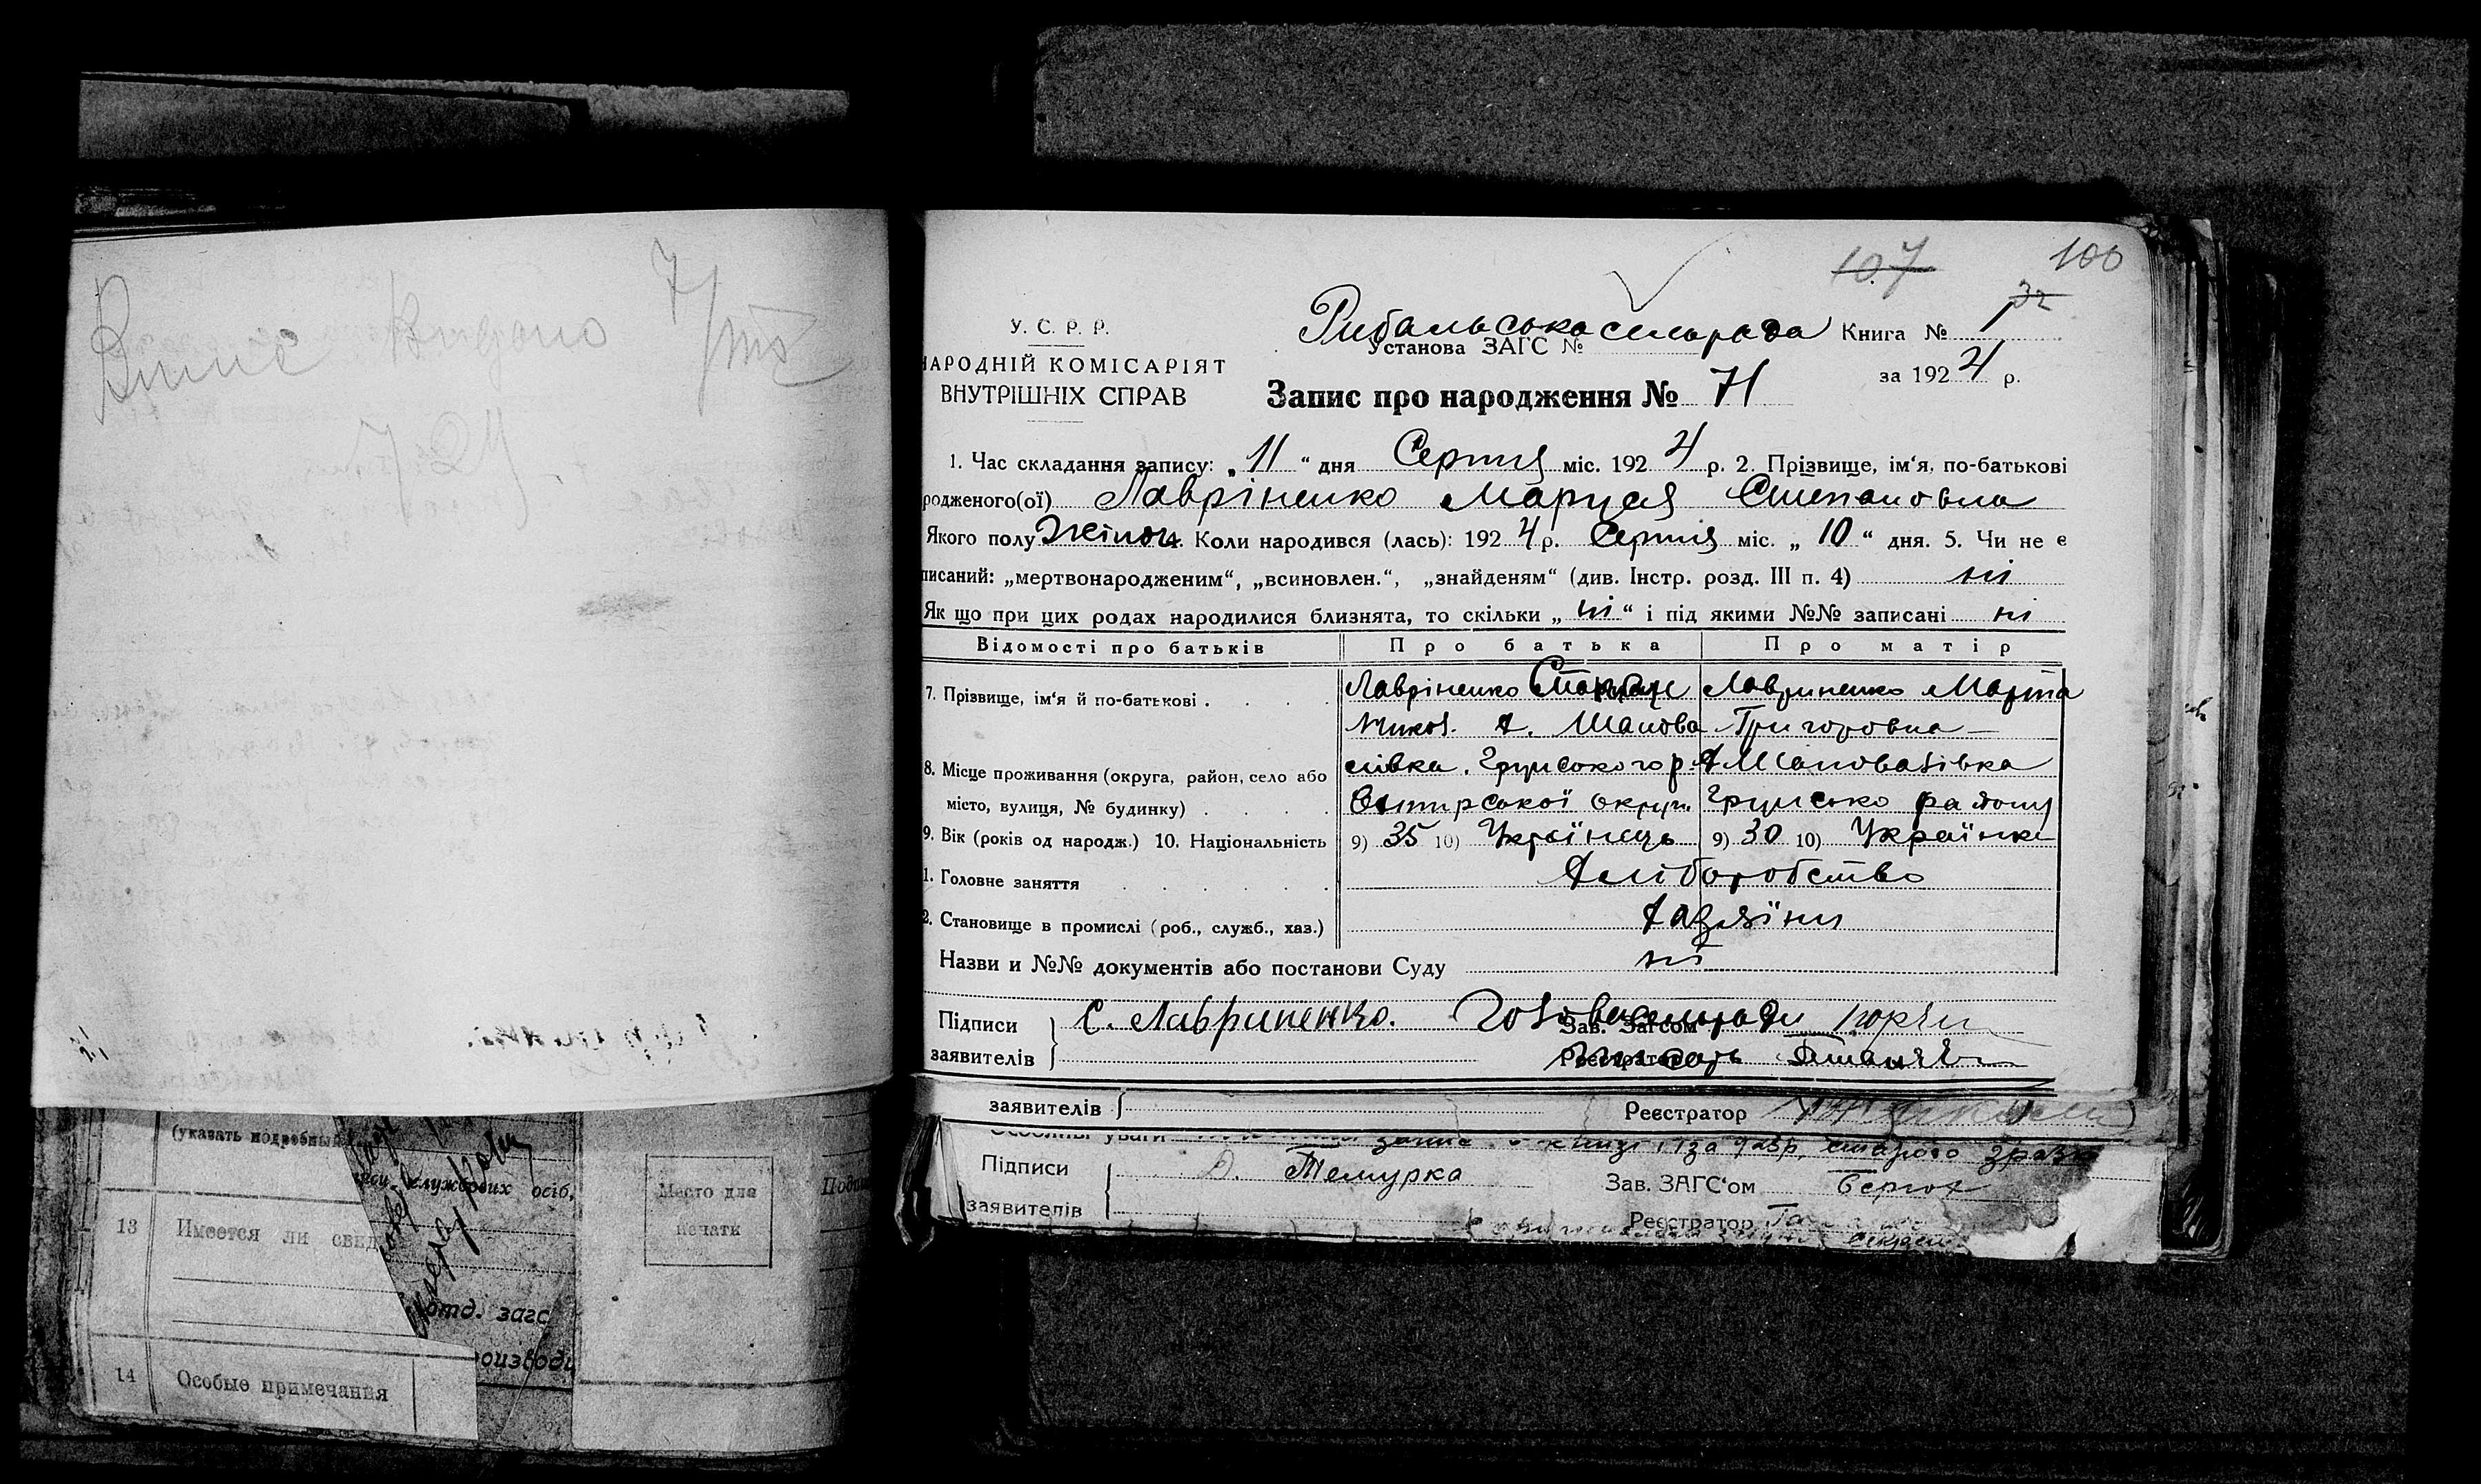 Випис видано 7/
107
100
32
У. С. Р. Р.
Рибальська сельрада Книга № 1
Установа ЗАГС №
НАРОДНІЙ КОМІСАРІЯТ
ВНУТРІШНІХ СПРАВ
за 1924 р.
Запис про народження № 71
1. Час складання запису: „11“ дня Серпня міс. 1924 р. 2. Прізвище, ім‘я, по-батькові
родженого(ої) Лавріненко Маруся Степановна
Якого полу Жіноч. Коли народився (лась): 1924 р. Серпня міс. „10“ дня. 5. Чи не є
писаний: „мертвонародженим“, „всиновлен.“, „знайденям“ (див. Інстр. розд. III п. 4) ні
Як що при цих родах народилися близнята, то скільки „ні“ і під якими №№ записані ні
Відомості про батьків Про батька Про матір
7. Прізвище, ім‘я й по-батькові . . . . Лавріненко Степан Лавриненко Марта
Микол. х. Шапова Григоровна
8. Місце проживання (округа, район, село або лівка, Грунського р. х Шаповалівка
місто, вулиця, № будинку) . . . . Охтирської округи Грунсько району
9. Вік (років од народж.) 10. Національність 9) 35 10) Українець 9) 30 10) Українка
1. Головне заняття . . . . . Хліборобство
2. Становище в промислі (роб., служб., хаз.) хазяїни
Назви и №№ документів або постанови Суду ні
Підписи С. Лавриненко. Голова сельради
Зав. Загсом
заявителів Реєстратор
заявителів Реєстратор
Особливі уваги
Підписи Д. Темурка Зав. ЗАГС‘ом
заявителів Реєстратор
(указать подробны
службових осіб,
Место для
печати
13 Имеется ли свед
отд. загс
14 Особые примечания